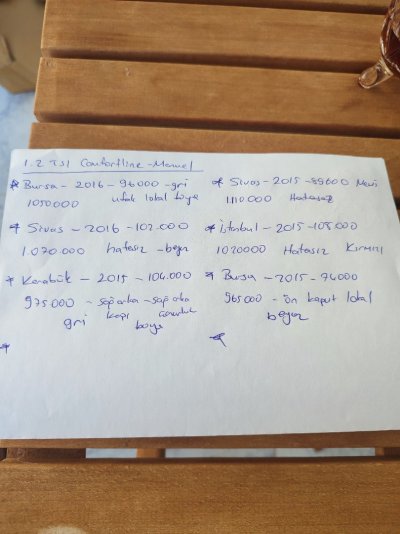 1.2 TSI Comfortline - Manuel
* Bursa - 2016 - 96000 - gri
1050.000 ufak lokal boya
* Sivas - 2016 - 102.000
1.070.000 hatasız - beyaz
* Karabük - 2015 - 104.000
975.000 - sağ arka - sağ arka
gri kapı çamurluk
boya
*
* Sivas - 2015 - 89600 Mavi
1.110.000 Hatasız
* İstanbul - 2015 - 108.000
1020000 Hatasız Kırmızı
* Bursa - 2015 - 94000
965000 - ön kaput lokal
beyaz
*